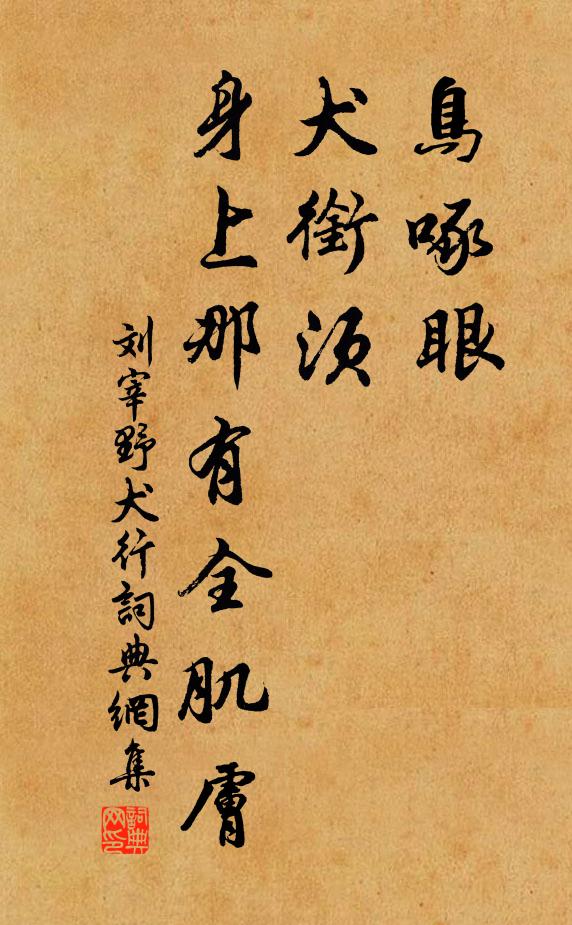 鳥啄眼
犬銜須
身上那有全肌膚
刘宰野犬行詞典網集
詞典
网印